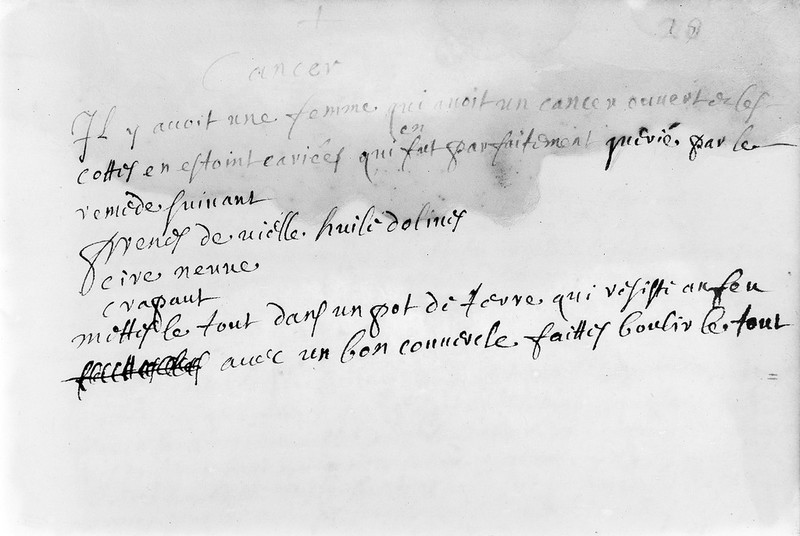 +
28
Cancer
Il y avoit une femme qui avoit un cancer ouvert & les
cottes en estoint cariées qui en fut parfaitement guerié par le
remede suivant
Prenes de vielle huile dolives
cire neuve
crapaut
mettes le tout dans un pot de terre qui resiste au feu
avec un bon couvercle faittes boulir le tout
=